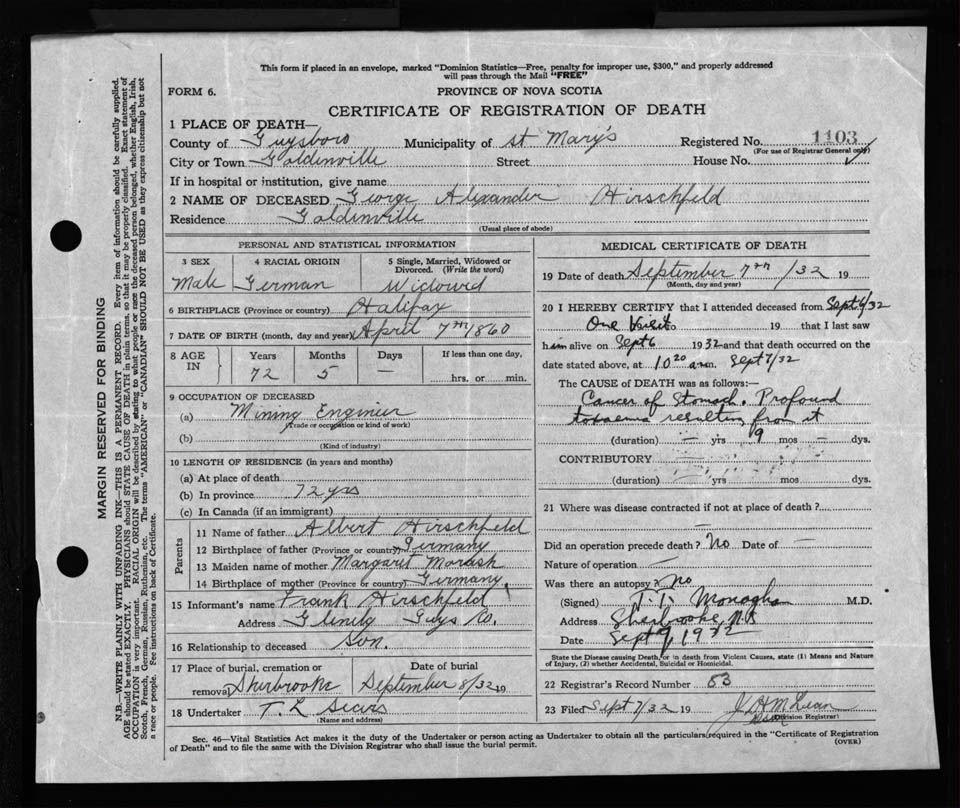 This form if placed in an envelope, marked "Dominion Statistics—Free, penalty for improper use, $300," and properly addressed
will pass through the Mail "FREE"
FORM 6. PROVINCE OF NOVA SCOTIA
CERTIFICATE OF REGISTRATION OF DEATH
1 PLACE OF DEATH—
County of Guysboro Municipality of St Mary's Registered No. 1103
(For use of Registrar General only)
City or Town Goldenville Street House No.
If in hospital or institution, give name
2 NAME OF DECEASED George Alexander Hirschfeld
Residence Goldenville
(Usual place of abode)
PERSONAL AND STATISTICAL INFORMATION
3 SEX 4 RACIAL ORIGIN 5 Single, Married, Widowed or Divorced. (Write the word)
Male German Widowed
6 BIRTHPLACE (Province or country) Halifax
7 DATE OF BIRTH (month, day and year) April 7th 1860
8 AGE IN Years Months Days If less than one day,
72 5 — hrs. or min.
9 OCCUPATION OF DECEASED
(a) Mining Engineer
(Trade or occupation or kind of work)
(b)
(Kind of industry)
10 LENGTH OF RESIDENCE (in years and months)
(a) At place of death
(b) In province 72 yrs
(c) In Canada (if an immigrant)
Parents
11 Name of father Albert Hirschfeld
12 Birthplace of father (Province or country) Germany
13 Maiden name of mother Margaret
14 Birthplace of mother (Province or country) Germany
15 Informant's name Frank Hirschfeld
Address Glenelg Guys Co.
16 Relationship to deceased Son.
17 Place of burial, cremation or removal Sherbrooke Date of burial September 8/32 19
18 Undertaker T. L
(Name and address)
MEDICAL CERTIFICATE OF DEATH
19 Date of death September 7th /32 19
(Month, day and year)
20 I HEREBY CERTIFY that I attended deceased from Sept 6/32
One Visit to 19 that I last saw
him alive on Sept 6 1932 and that death occurred on the
date stated above, at 10 20 a.m. Sept 7/32
The CAUSE OF DEATH was as follows:—
Cancer of Stomach. Profound
toxaemia resulting from it
(duration) — yrs 9 mos — dys.
CONTRIBUTORY
(duration) yrs mos dys.
21 Where was disease contracted if not at place of death?
—
Did an operation precede death? No Date of —
Nature of operation —
Was there an autopsy? no
(Signed) T. T. Monaghan M.D.
Address Sherbrooke, N.S
Date Sept 9, 1932
State the Disease causing Death, or in death from Violent Causes, state (1) Means and Nature
of Injury, (2) whether Accidental, Suicidal or Homicidal.
22 Registrar's Record Number 53
23 Filed Sept 7/32 19 J H McLean
(Division Registrar)
Sec. 46—Vital Statistics Act makes it the duty of the Undertaker or person acting as Undertaker to obtain all the particulars required in the "Certificate of Registration
of Death" and to file the same with the Division Registrar who shall issue the burial permit. (OVER)
MARGIN RESERVED FOR BINDING
N.B.—WRITE PLAINLY WITH UNFADING INK—THIS IS A PERMANENT RECORD. Every item of information should be carefully supplied.
AGE should be stated EXACTLY. PHYSICIANS should STATE CAUSE OF DEATH in plain terms, so that it may be properly classified. Exact statement of
OCCUPATION is very important. RACIAL ORIGIN will be described by stating to what people or race the deceased person belonged, whether English, Irish,
Scotch, French, German, Russian, Ruthenian, etc. The terms "AMERICAN" or "CANADIAN" SHOULD NOT BE USED as they express citizenship but not
a race or people. See instructions on back of Certificate.